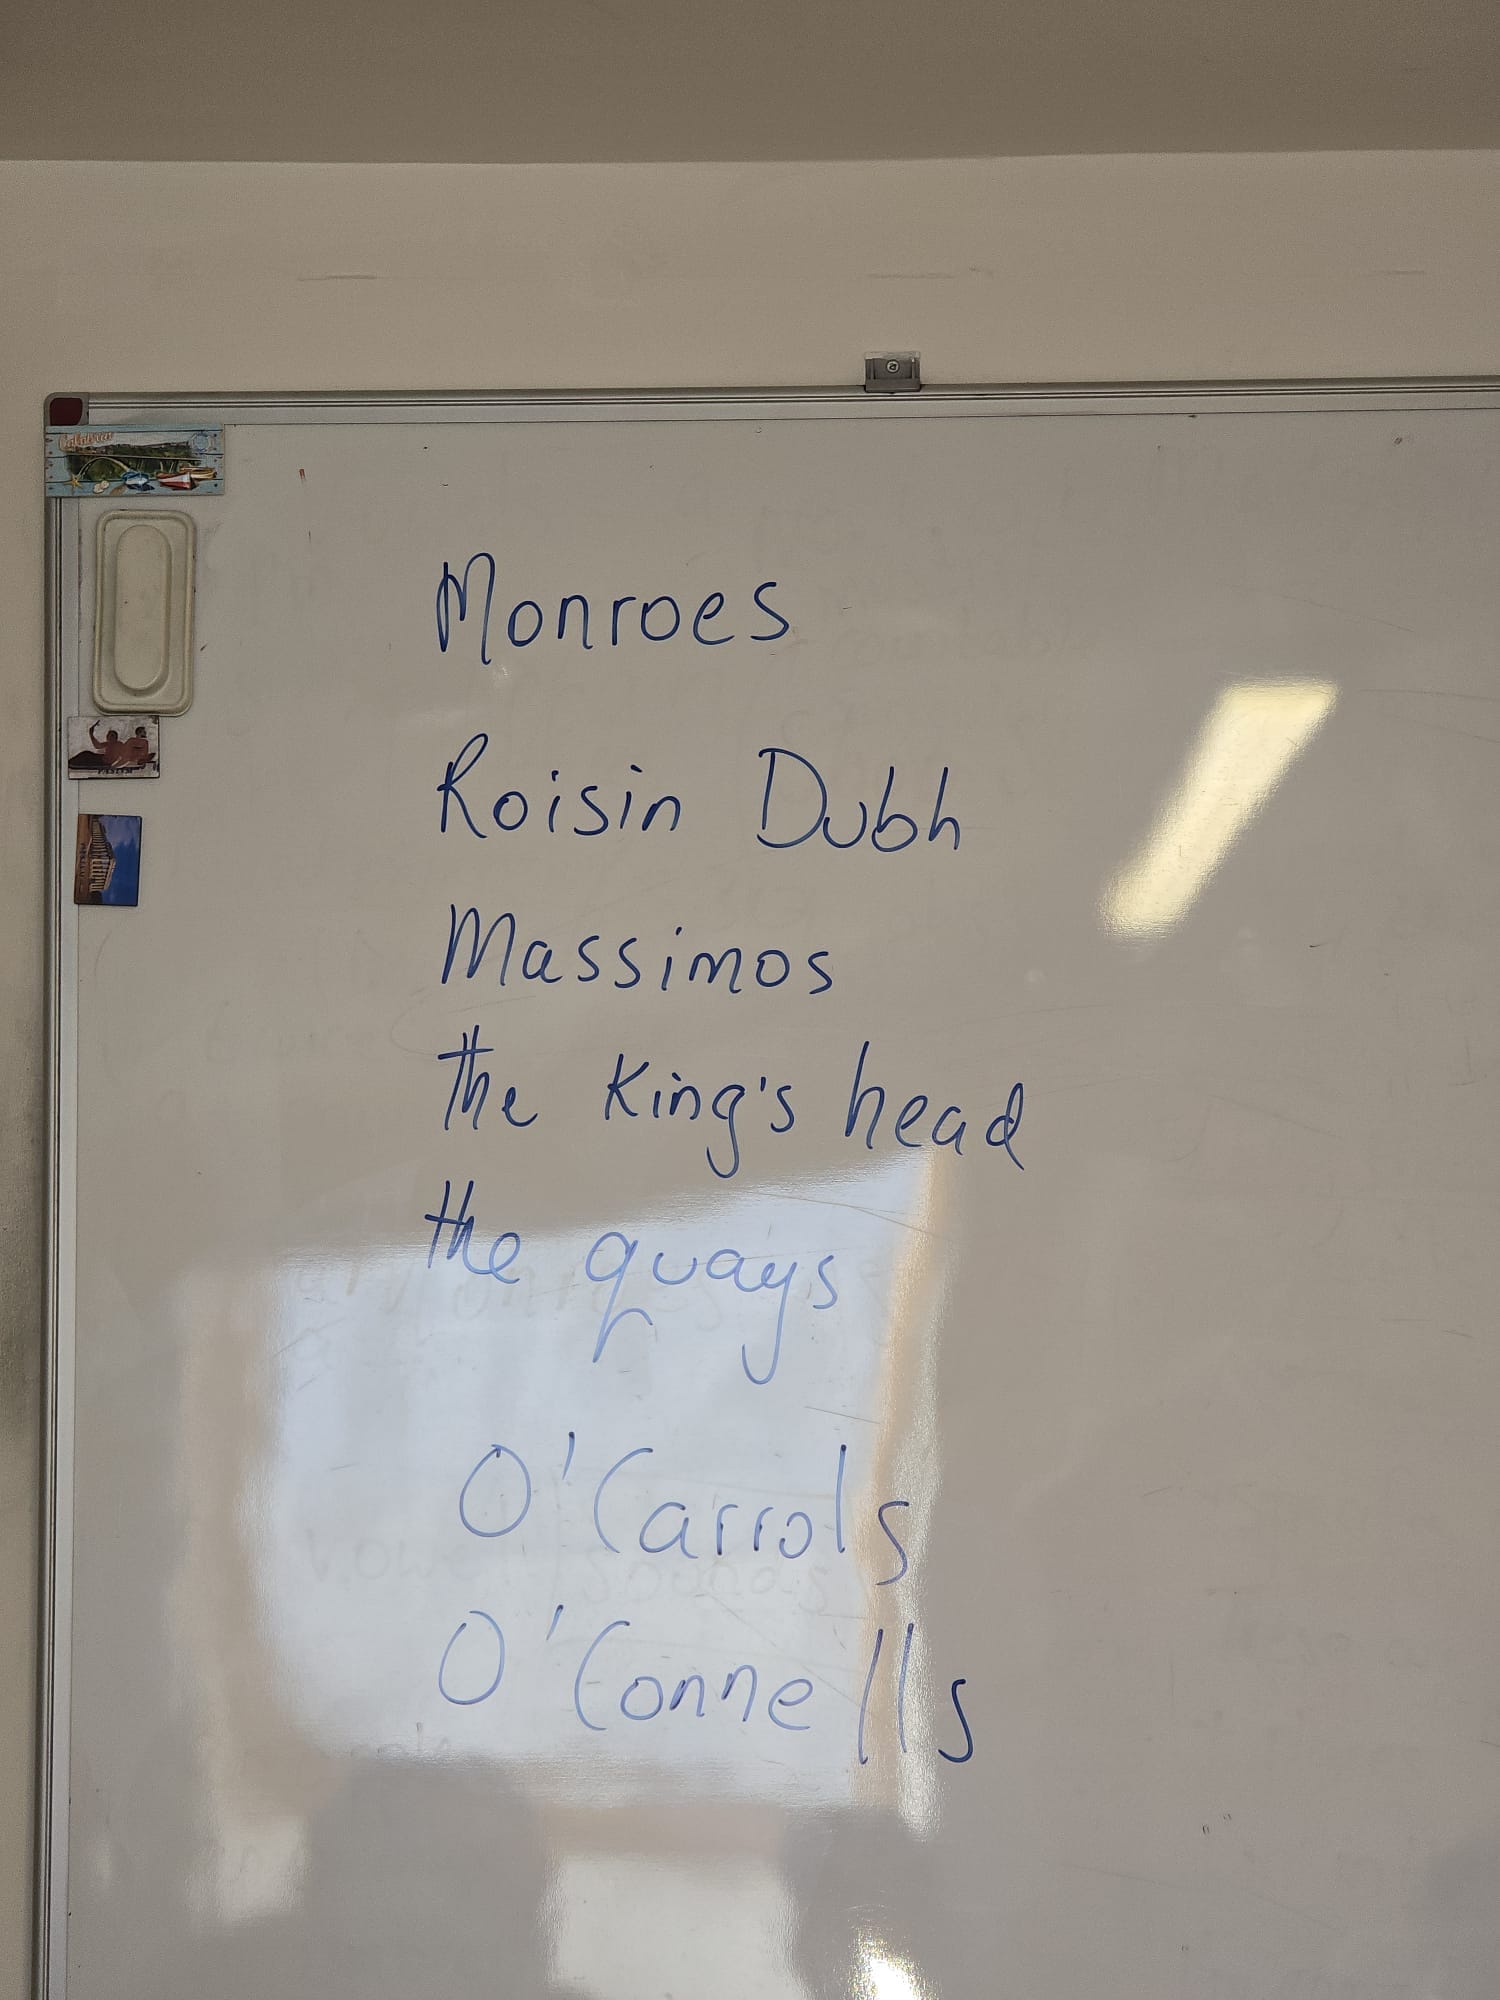 Calabria
PAESTUM
Monroes
Roisin Dubh
Massimos
the King's head
the quays
O'Carrols
O'Connells